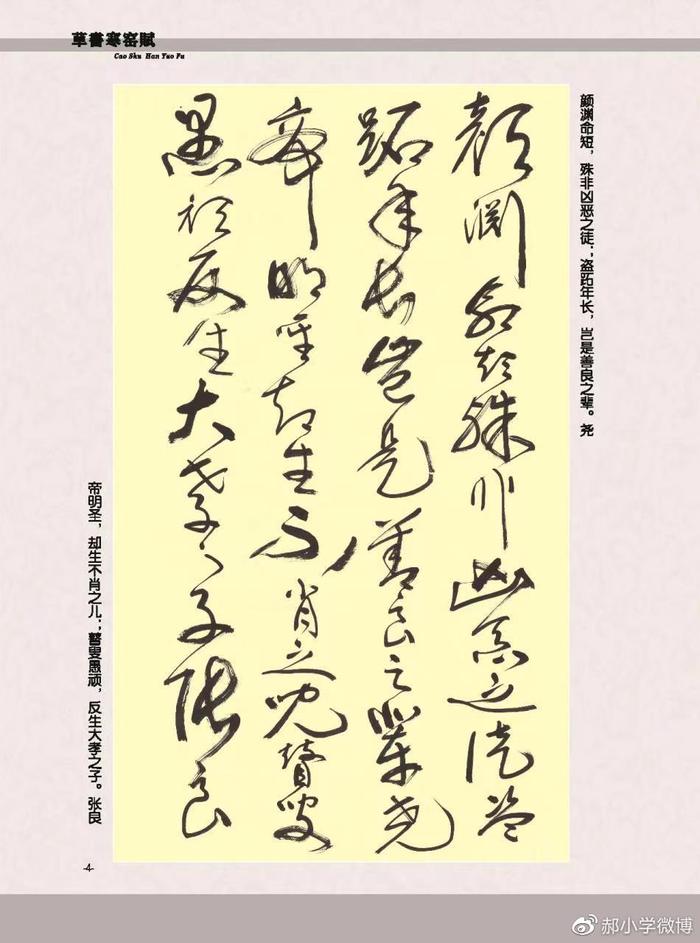 草書寒窑賦
Cao Shu Han Yao Fu
颜渊命短，殊非凶恶之徒；盗跖年长，岂是善良之辈。尧
顔渊命短殊非凶惡之徒盗
跖年长岂是善良之辈尧
帝明圣却生不肖之兒瞽叟
愚顽反生大孝之子张良
帝明圣，却生不肖之儿；瞽叟愚顽，反生大孝之子。张良
-4-
郝小学微博